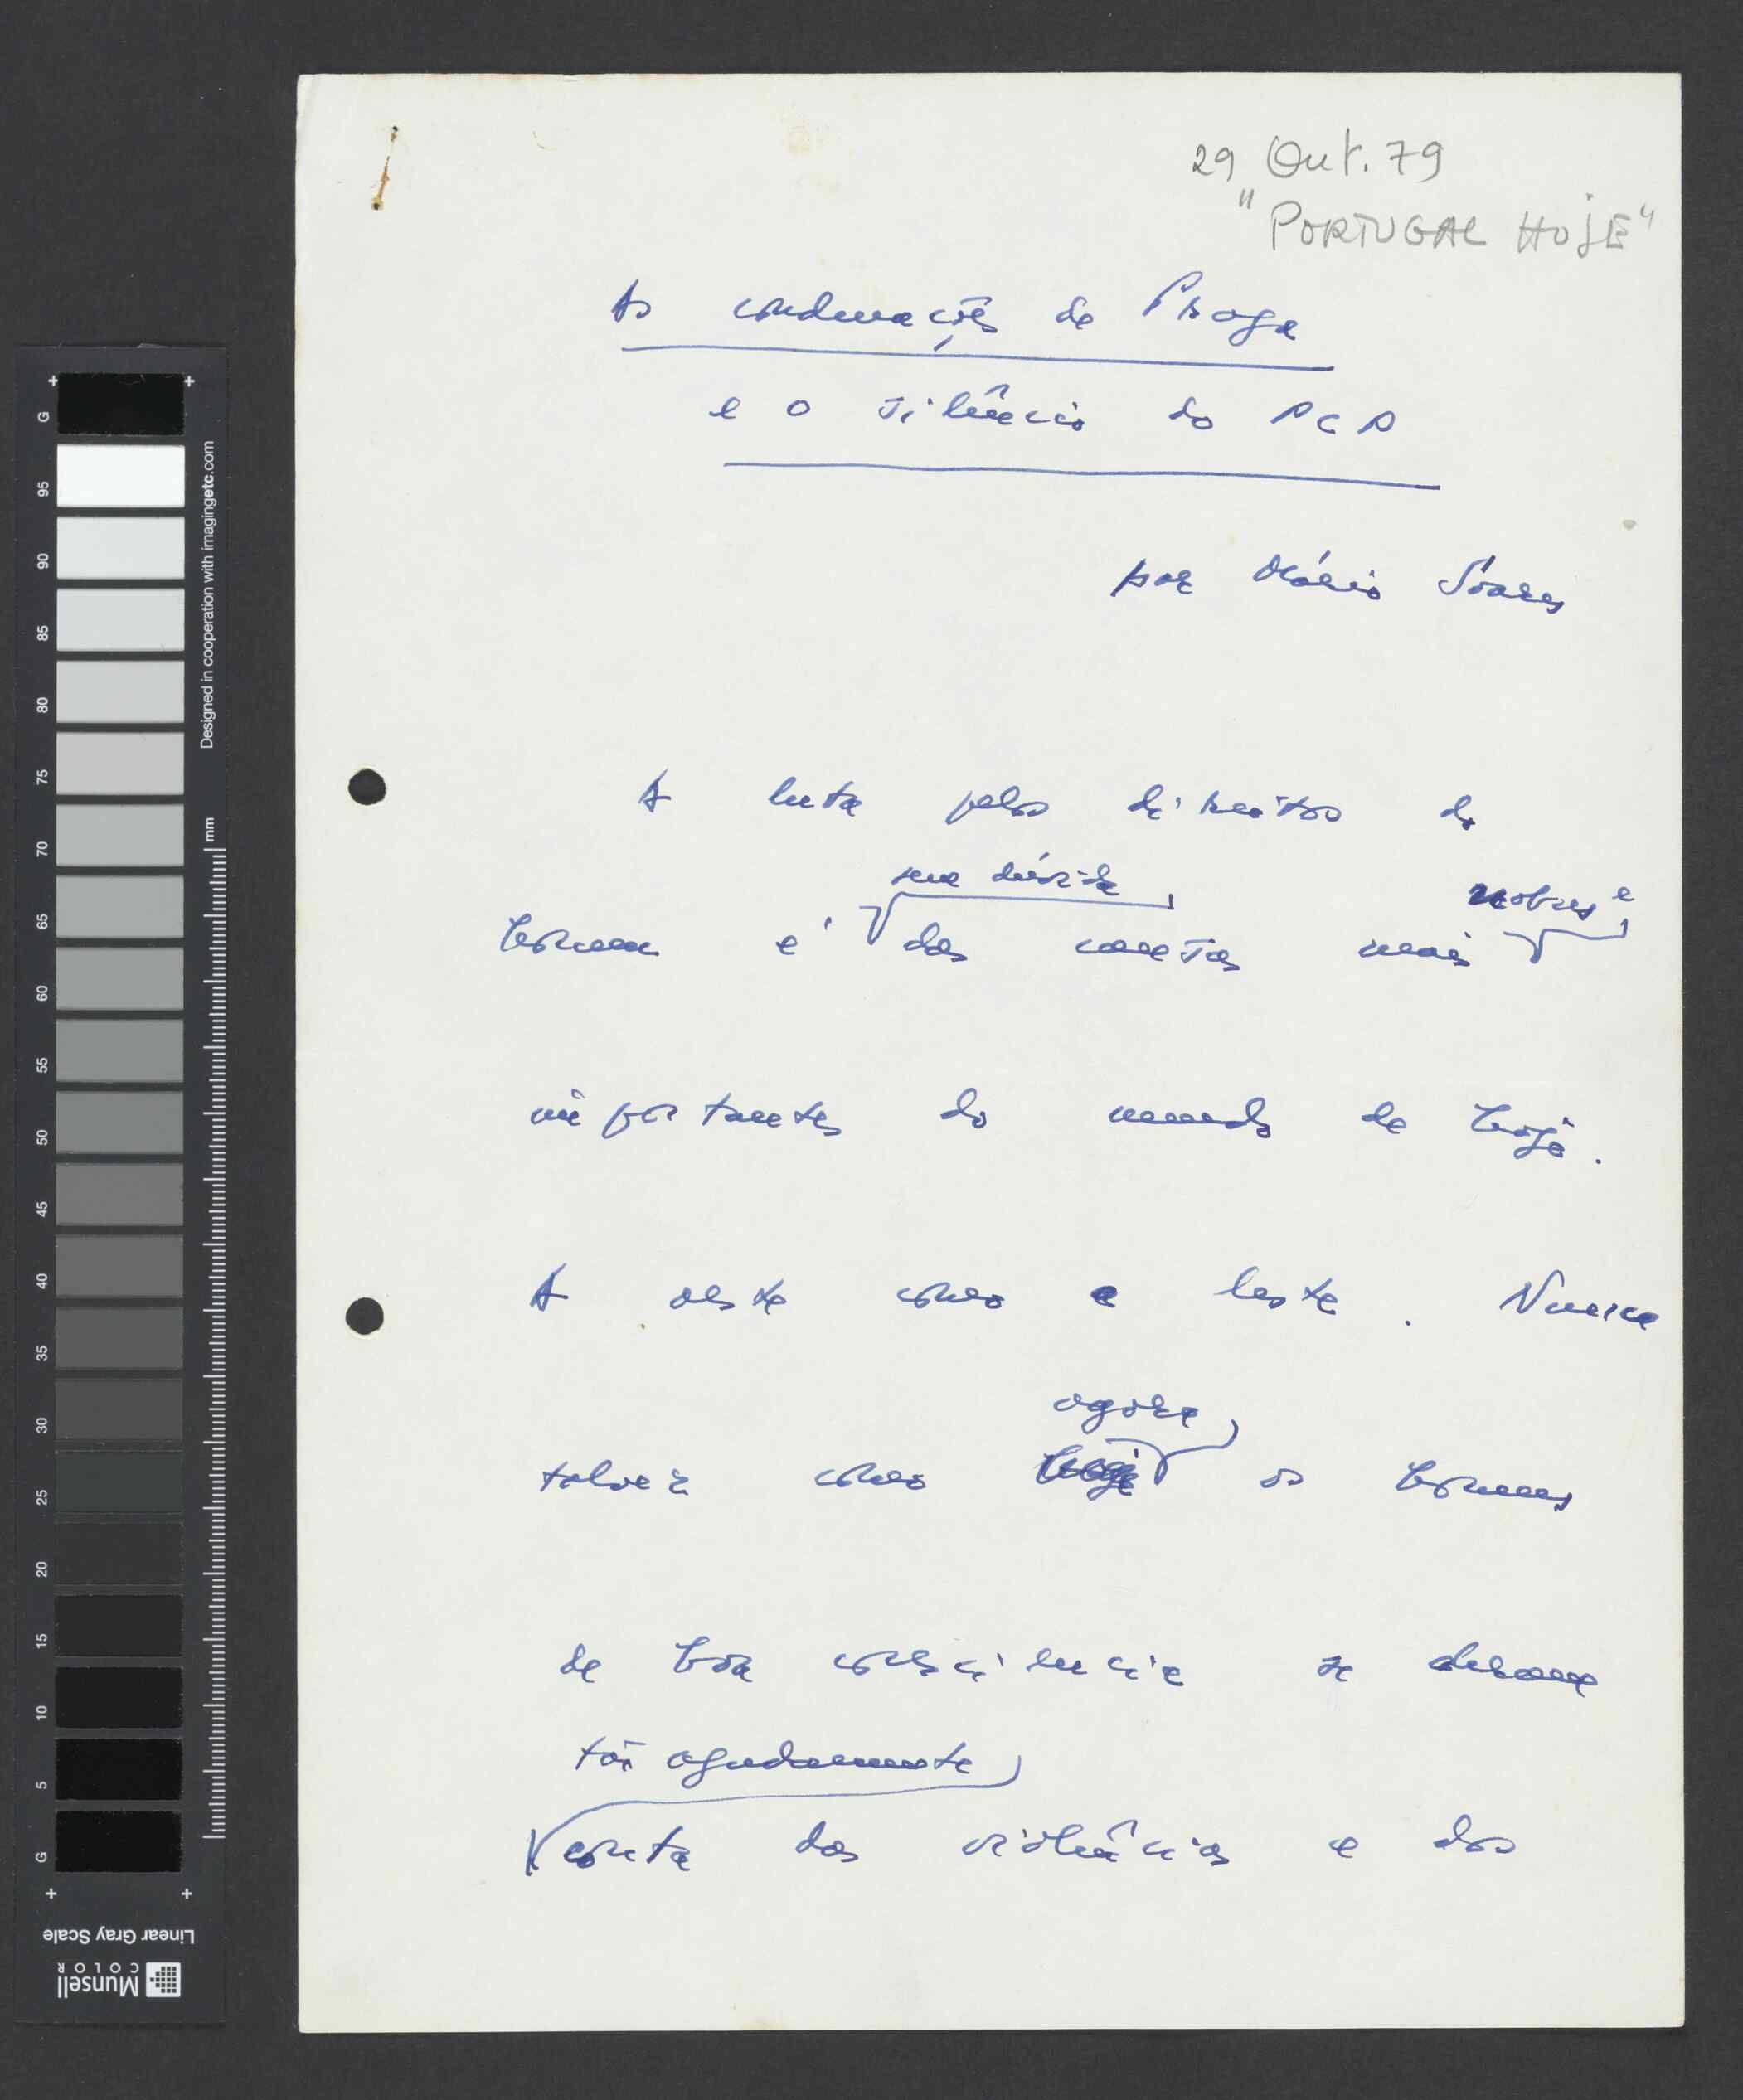 29 Out. 79
"PORTUGAL HOJE"
As condenações de Praga
e o silêncio do PCP
por Mário Soares
A luta pelos direitos do
sem dúvida
nobres e
homem é das causas mais
importantes do mundo de hoje.
A oeste como a leste. Nunca
agora
talvez como hoje os homens
de boa consciência se deram
tão agudamente
conta das violências e dos
G 95 90 85 80 75 70 65 60 55 50 45 40 35 30 25 20 15 10 5 G
Designed in cooperation with imagingetc.com
mm
Linear Gray Scale
Munsell
COLOR